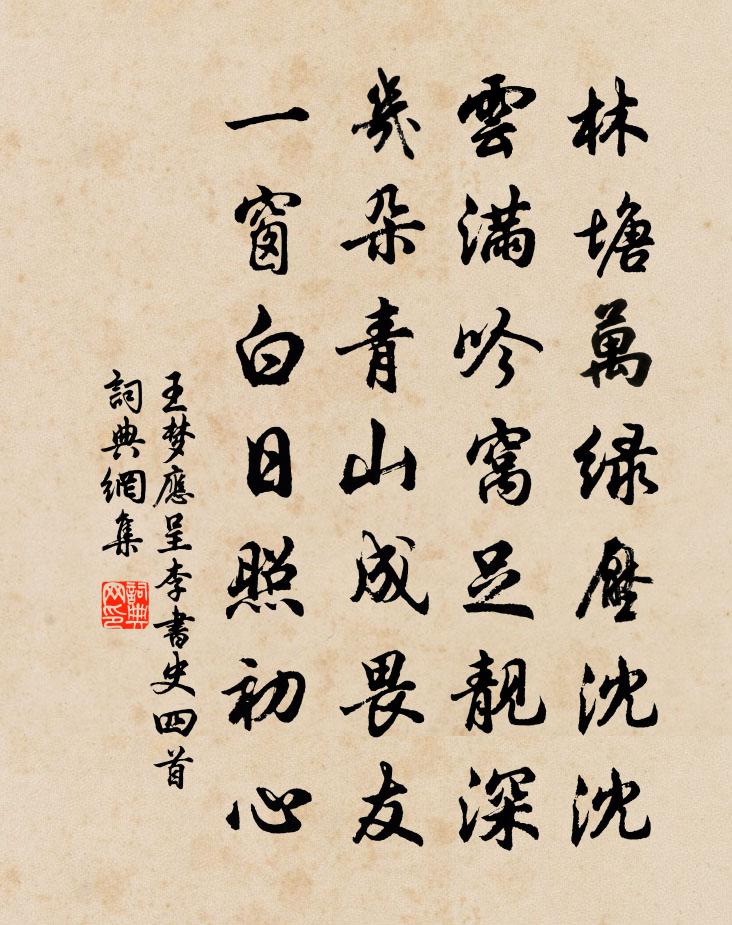 林塘萬緑壓沈沈
雲滿吟窩足靚深
幾朵青山成畏友
一窗白日照初心
王梦應呈李書史四首
詞典網集
詞典网印